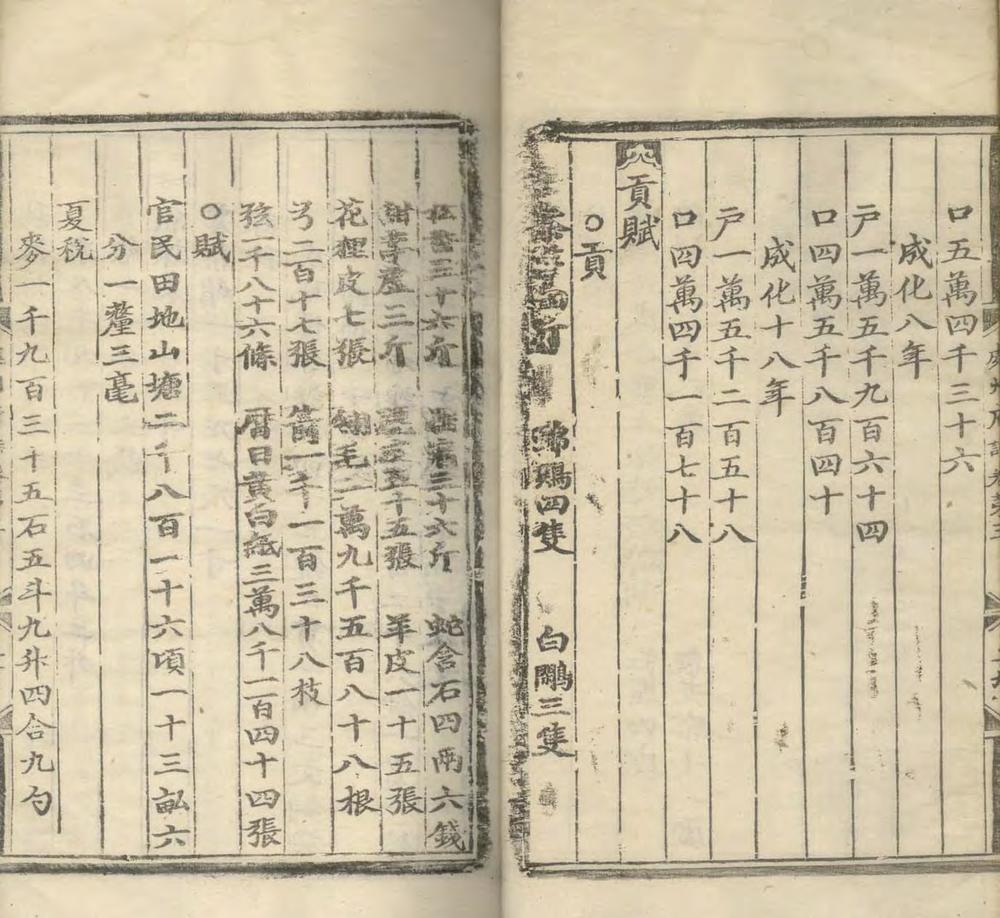 口五萬四千三十六
成化八年
戸一萬五千九百六十四
口四萬五千八百四十
成化十八年
戸一萬五千二百五十八
口四萬四千一百七十八
貢賦
○貢
鷄四隻 白鷴三隻
三十六斤 三十六斤 蛇含石四兩六錢
三斤 五十五張 羊皮一十五張
花狸皮七張 翎毛二萬九千五百八十八根
弓二百十七張 箭一千一百三十八枝
弦一千八十六條 曆日黃白紙三萬八千二百四十四張
○賦
官民田地山塘二千八百一十六頃一十三畝六
分一釐三毫
夏稅
麥一千九百三十五石五斗九升四合九勺